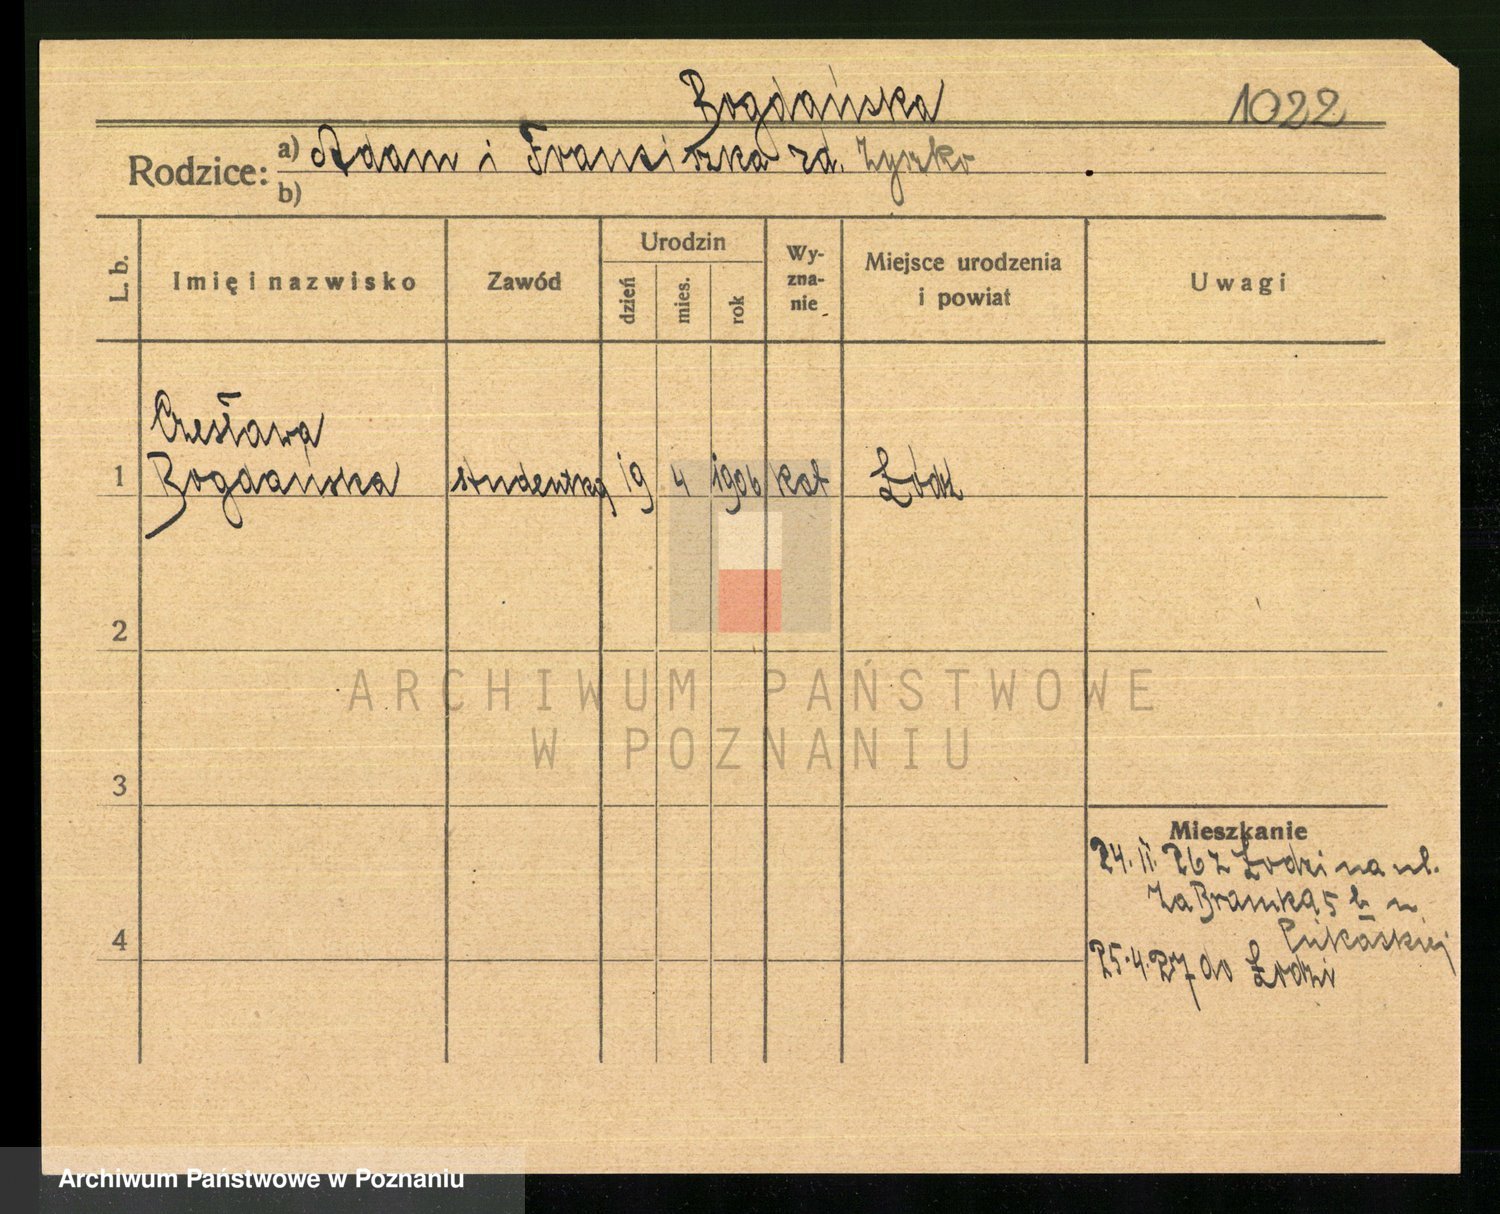 Bogdańska
1022
Rodzice:
a) Adam i Fransiszka zd. Zyszko
b)
L. b.
Imię i nazwisko
Zawód
Urodzin
dzień
mies.
rok
Wy-
zna-
nie
Miejsce urodzenia
i powiat
Uwagi
Czesława
1 Bogdańska studentka 19 4 1906 kat Łódź
2
ARCHIWUM PAŃSTWOWE
W POZNANIU
3
Mieszkanie
24. II. 26 z Łodzi na ul.
Za Bramką 5 b u
4
25.4.27 do Łodzi
Archiwum Państwowe w Poznaniu